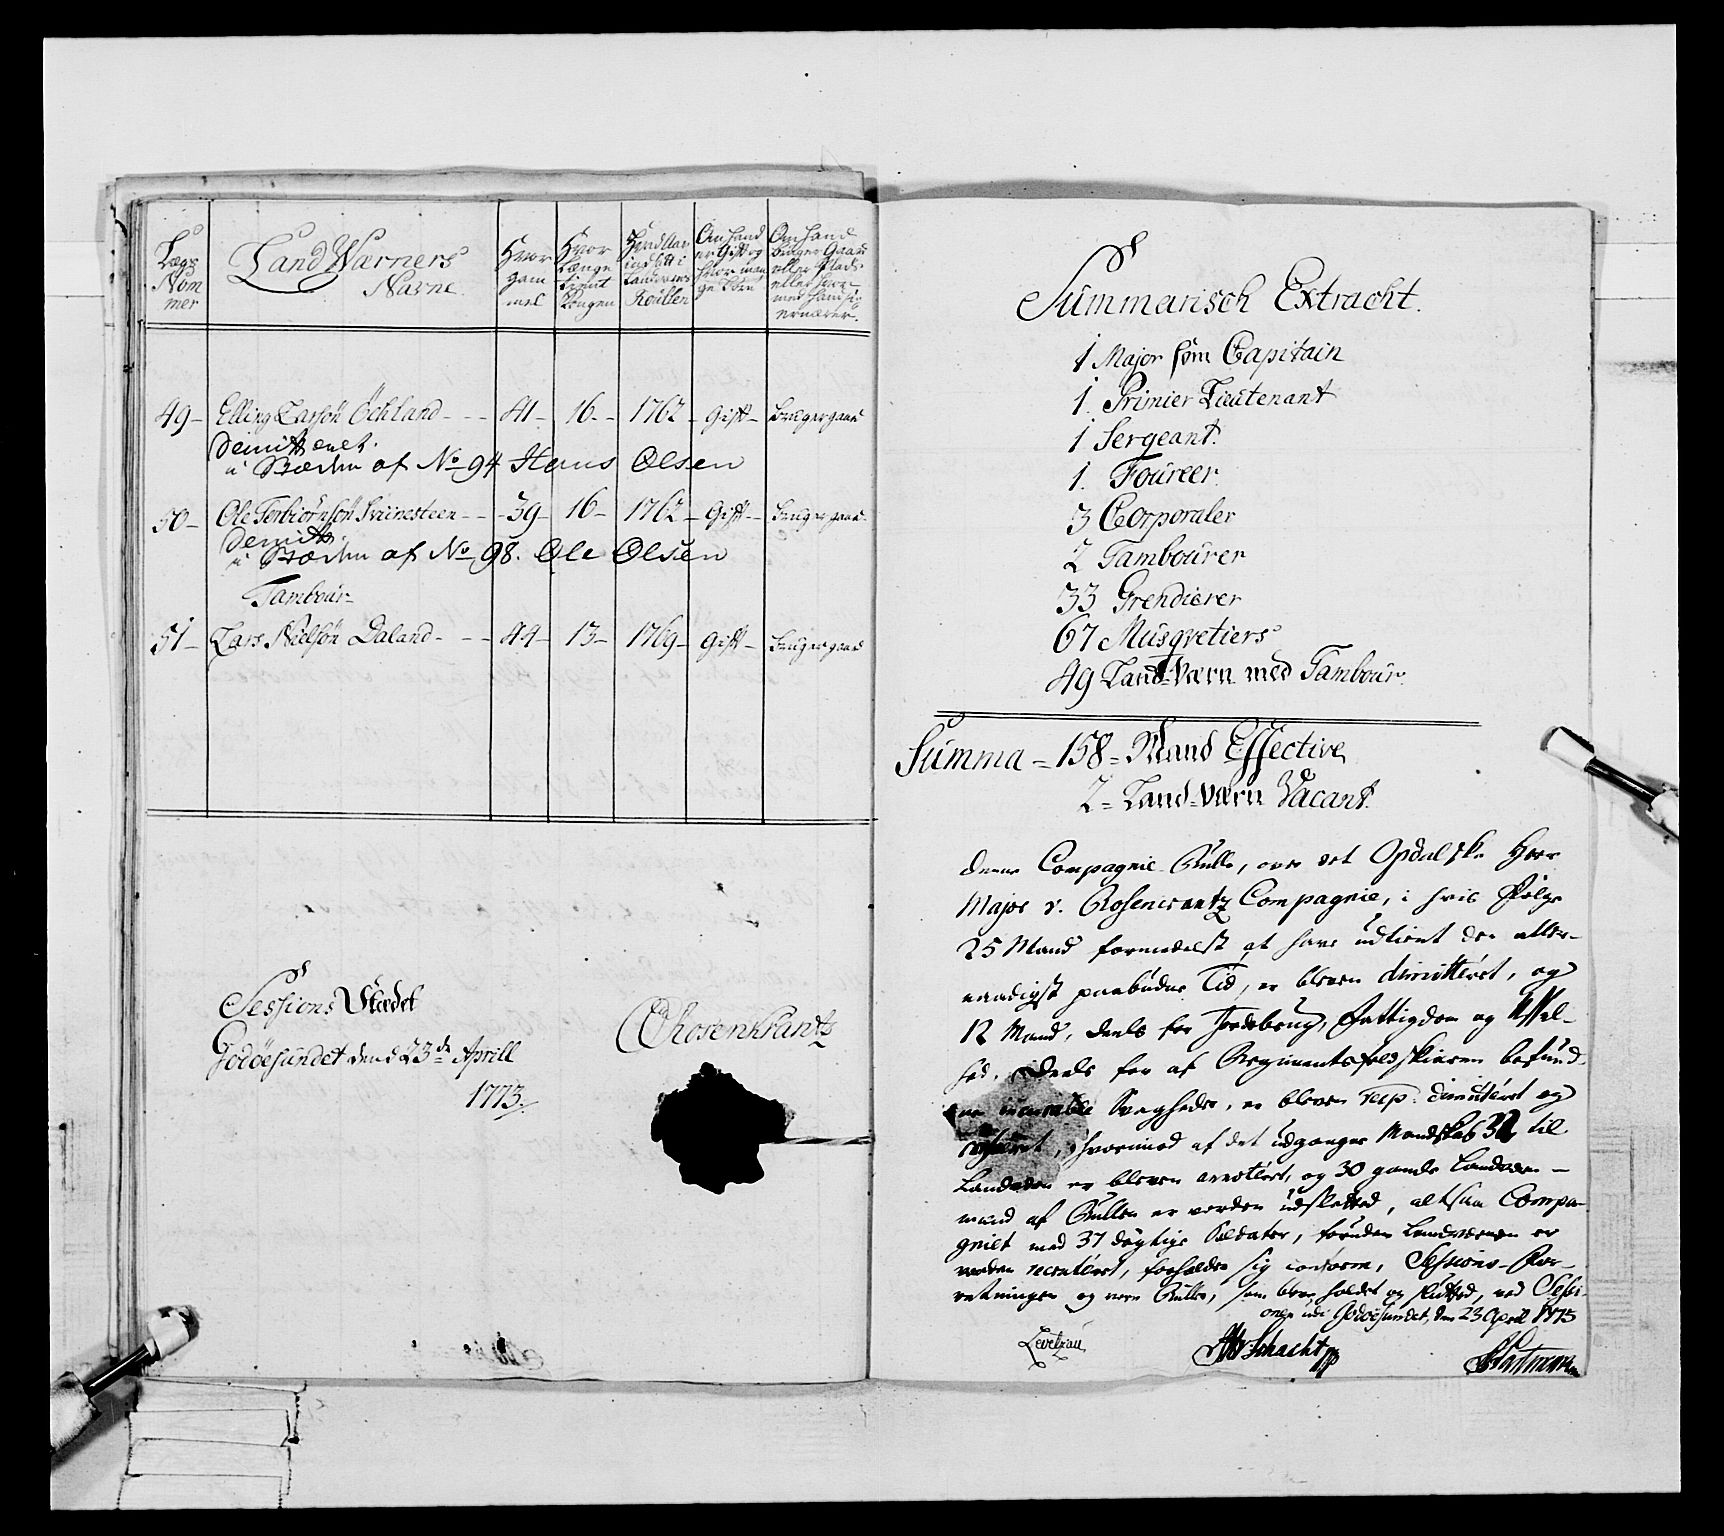 Lægs Nom mer
Land Wærners Nafne
Hvor gam mel
Hvor Længe tient Kongen
Hvad Aar indsatt i Landværns Roullen
Om hand er Gift og hvor man ge Børn
Om hand bruger Gaard eller Plads eller hvor med hand sig ernærer.
49 - Elling Larsøn Öckland - - - 41 - 16 - 1762 - Gift - bruger gaard
Demitteret.
i Stæden af No 94 Hans Olsen
50 - Ole Torbiörnsön Svinesteen - - 39 - 16 - 1762 - Gift - bruger gaard
Demitt.
i Stæden af No 98. Ole Olsen
Tambour
51 - Lars Nielsön Daland - - - 44 - 13 - 1769 - Gift - bruger gaard
Sessions Stædet
Godöesundet den 23de Aprill
1773.
Rosenkrantz
Summarisch Extracht.
1 Major som Capitain
1. Primier Lieutenant
1 Sergeant.
1. Foureer.
3 Corporaler
2 Tambourer
33 Grendierer
67 Musqvetiers
49 Land-Værn med Tambour.
Summa - 158 - Mand Effective
2 - Land-Værn Vacant.
Denne Compagnie Rulle, over det Opdalske Herr
Major v. Rosencrantz Compagnie, i hvis Følge
25 Mand formedelst at have udtient den aller-
naadigst paabudne Tid, er bleven dimitteret, og
12 Mand, deels for Jordebrug, Fattigdom og Ussel-
hed, deels for af Regimentsfeldskieren befund-
ne Svagheder, er bleven resp: dimitteret og
hvorimod af det udgangne Mandskab 32 til
Landværn er bleven annoteret, og 30 gamle Landværn-
mænd af Rullen er vorden udslettet, altsaa Compa-
gniet med 37 dygtige Soldater, foruden Landværnen er
vorden recruteret, forholder sig conform, Sessions-For-
retningen og nere Rulle, som blev holdet og sluttet, ved Sessi-
onen udi Godöesundet, den 23 April 1773
Levetzau
Schacht
Hartmann